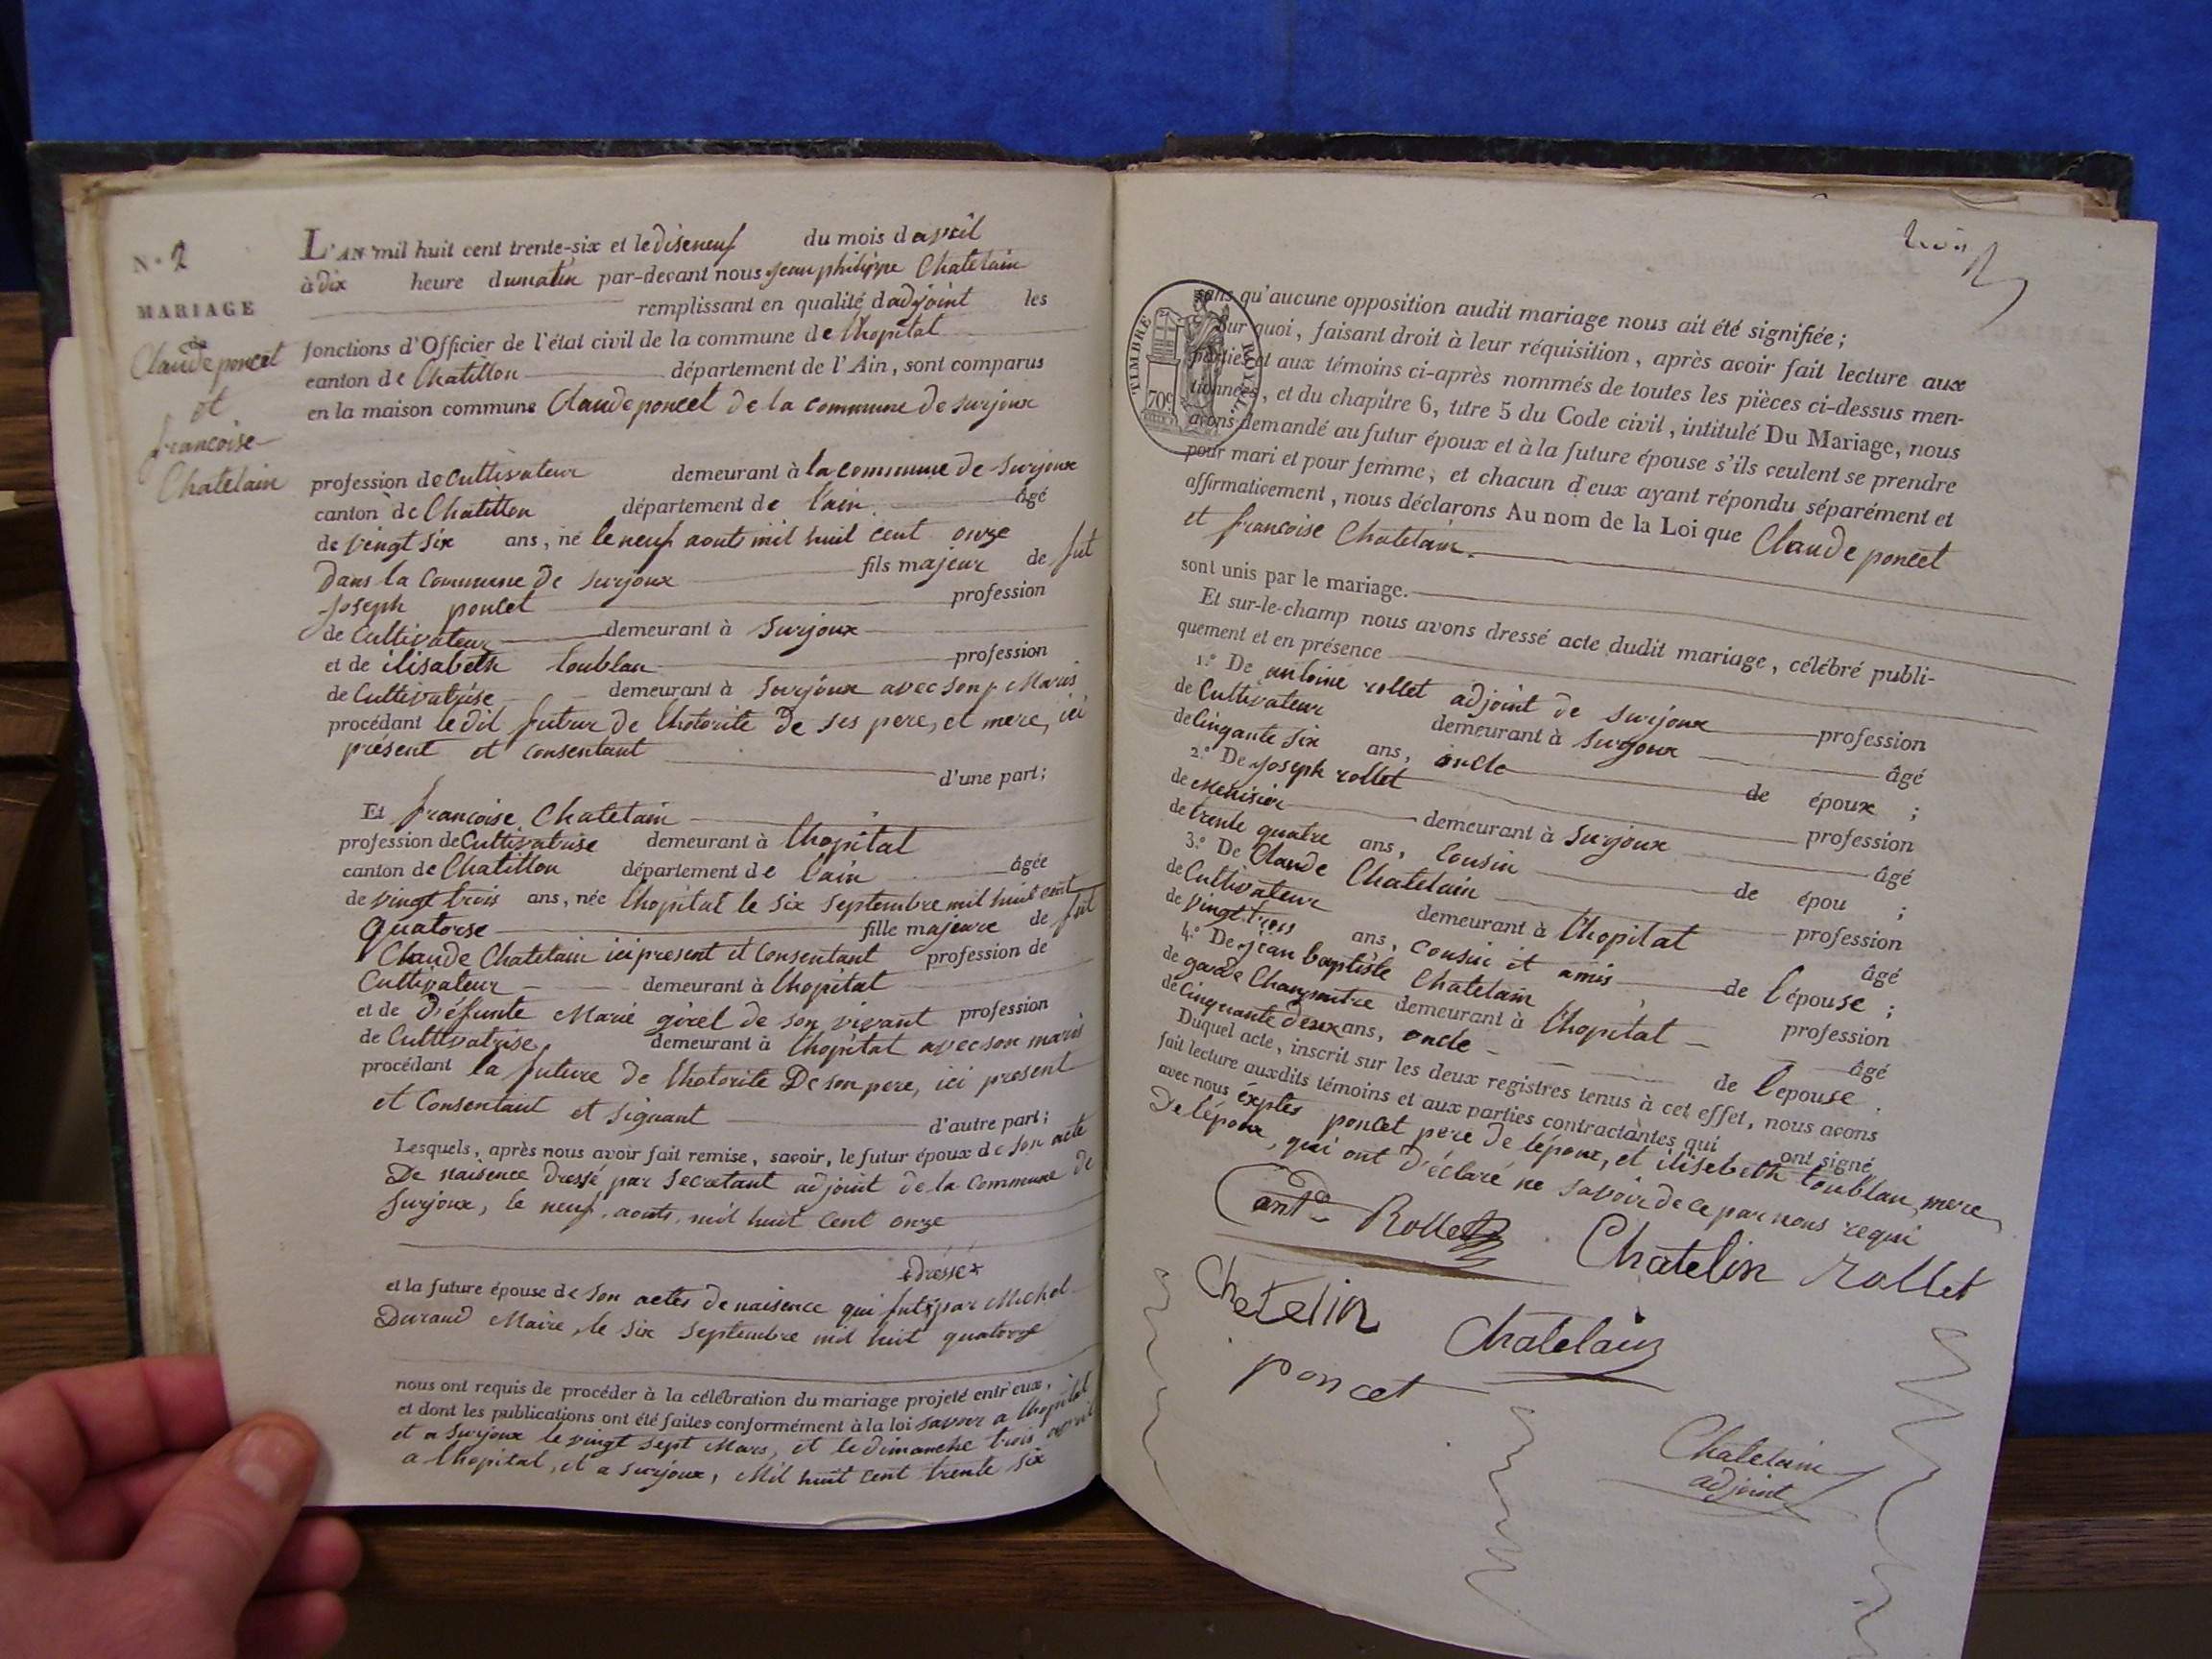 N.º 2
MARIAGE
de
Claude poncet
et
francoise
Chatelain
L'AN mil huit cent trente-six et le diseneuf du mois d avril
à dix heure du matin par-devant nous jean philippe Chatelain
remplissant en qualité d adjoint les
fonctions d'Officier de l'état civil de la commune de lhopital
canton de Chatillon département de l'Ain, sont comparus
en la maison commune Claude poncet de la commune de surjoux
profession de Cultivateur demeurant à la commune de Surjoux
canton de Chatillon département de lain âgé
de vingt six ans, né le neuf aouts mil huil cent onze
Dans la Commune de surjoux fils majeur de fut
Joseph poncet profession
de Cultivateur demeurant à Surjoux
et de élisabeth toublan profession
de Cultivatrise demeurant à Surjoux avec son Maris
procédant le dit futur de lhotorite de ses pere, et mere, ici
présent et consentant
d'une part;
Et francoise Chatelain
profession de Cultivatrise demeurant à lhopital
canton de Chatillon département de lain âgée
de vingt trois ans, née lhopital le six septembre mil huit cent
quatorse fille majeure de fut
Claude Chatelain ici present et Consentant profession de
Cultivateur demeurant à lhopital
et de Défunte Marie girel de son vivant profession
de Cultivatrise demeurant à lhopital avec son maris
procédant la future de lhotorite De son pere, ici present
et Consentant et signant
d'autre part;
Lesquels, après nous avoir fait remise, savoir, le futur époux de son acte
De naisence dressé par Secretant adjoint de la Commune de
Surjoux, le neuf aouts mil huit cent onze
dressé
et la future épouse de son actes de naisence qui fut par Michel
Durand Maire, le six septembre mil huit quatorze
nous ont requis de procéder à la célébration du mariage projeté entr'eux,
et dont les publications ont été faites conformément à la loi savoir a lhopital
et a surjoux le vingt sept Mars, et le dimanche trois avril
a lhopital, et a surjoux, Mil huit cent trente six
TIMBRE ROYAL
70c
sans qu'aucune opposition audit mariage nous ait été signifiée;
Sur quoi, faisant droit à leur réquisition, après avoir fait lecture aux
parties et aux témoins ci-après nommés de toutes les pièces ci-dessus men-
tionnées, et du chapitre 6, titre 5 du Code civil, intitulé Du Mariage, nous
avons demandé au futur époux et à la future épouse s'ils veulent se prendre
pour mari et pour femme, et chacun d'eux ayant répondu séparément et
affirmativement, nous déclarons Au nom de la Loi que Claude poncet
et francoise Chatelain.
sont unis par le mariage.
Et sur-le-champ nous avons dressé acte dudit mariage, célébré publi-
quement et en présence
1.º De antoine rollet adjoint de surjoux profession
de Cultivateur demeurant à Surjoux âgé
de Cinqante six ans, oncle de époux ;
2.º De joseph rollet profession
de Menisier demeurant à Surjoux âgé
de trente quatre ans, Cousin de épou ;
3.º De Claude Chatelain profession
de Cultivateur demeurant à lhopital âgé
de vingt trois ans, cousin et amis de lépouse ;
4.º De jean baptiste Chatelain profession
de garde Champaitre demeurant à lhopital âgé
de Cinquante deux ans, oncle de lepouse.
Duquel acte, inscrit sur les deux registres tenus à cet effet, nous avons
fait lecture auxdits témoins et aux parties contractantes qui ont signé
avec nous éxptés poncet pere de lépoux, et élisebeth toublan mere
De lépoux, qui ont Déclaré ne savoir de ce par nous requi
ant.e Rollet Chatelin rollet
Chetelin Chatelain
poncet
Chatelain
adjoint